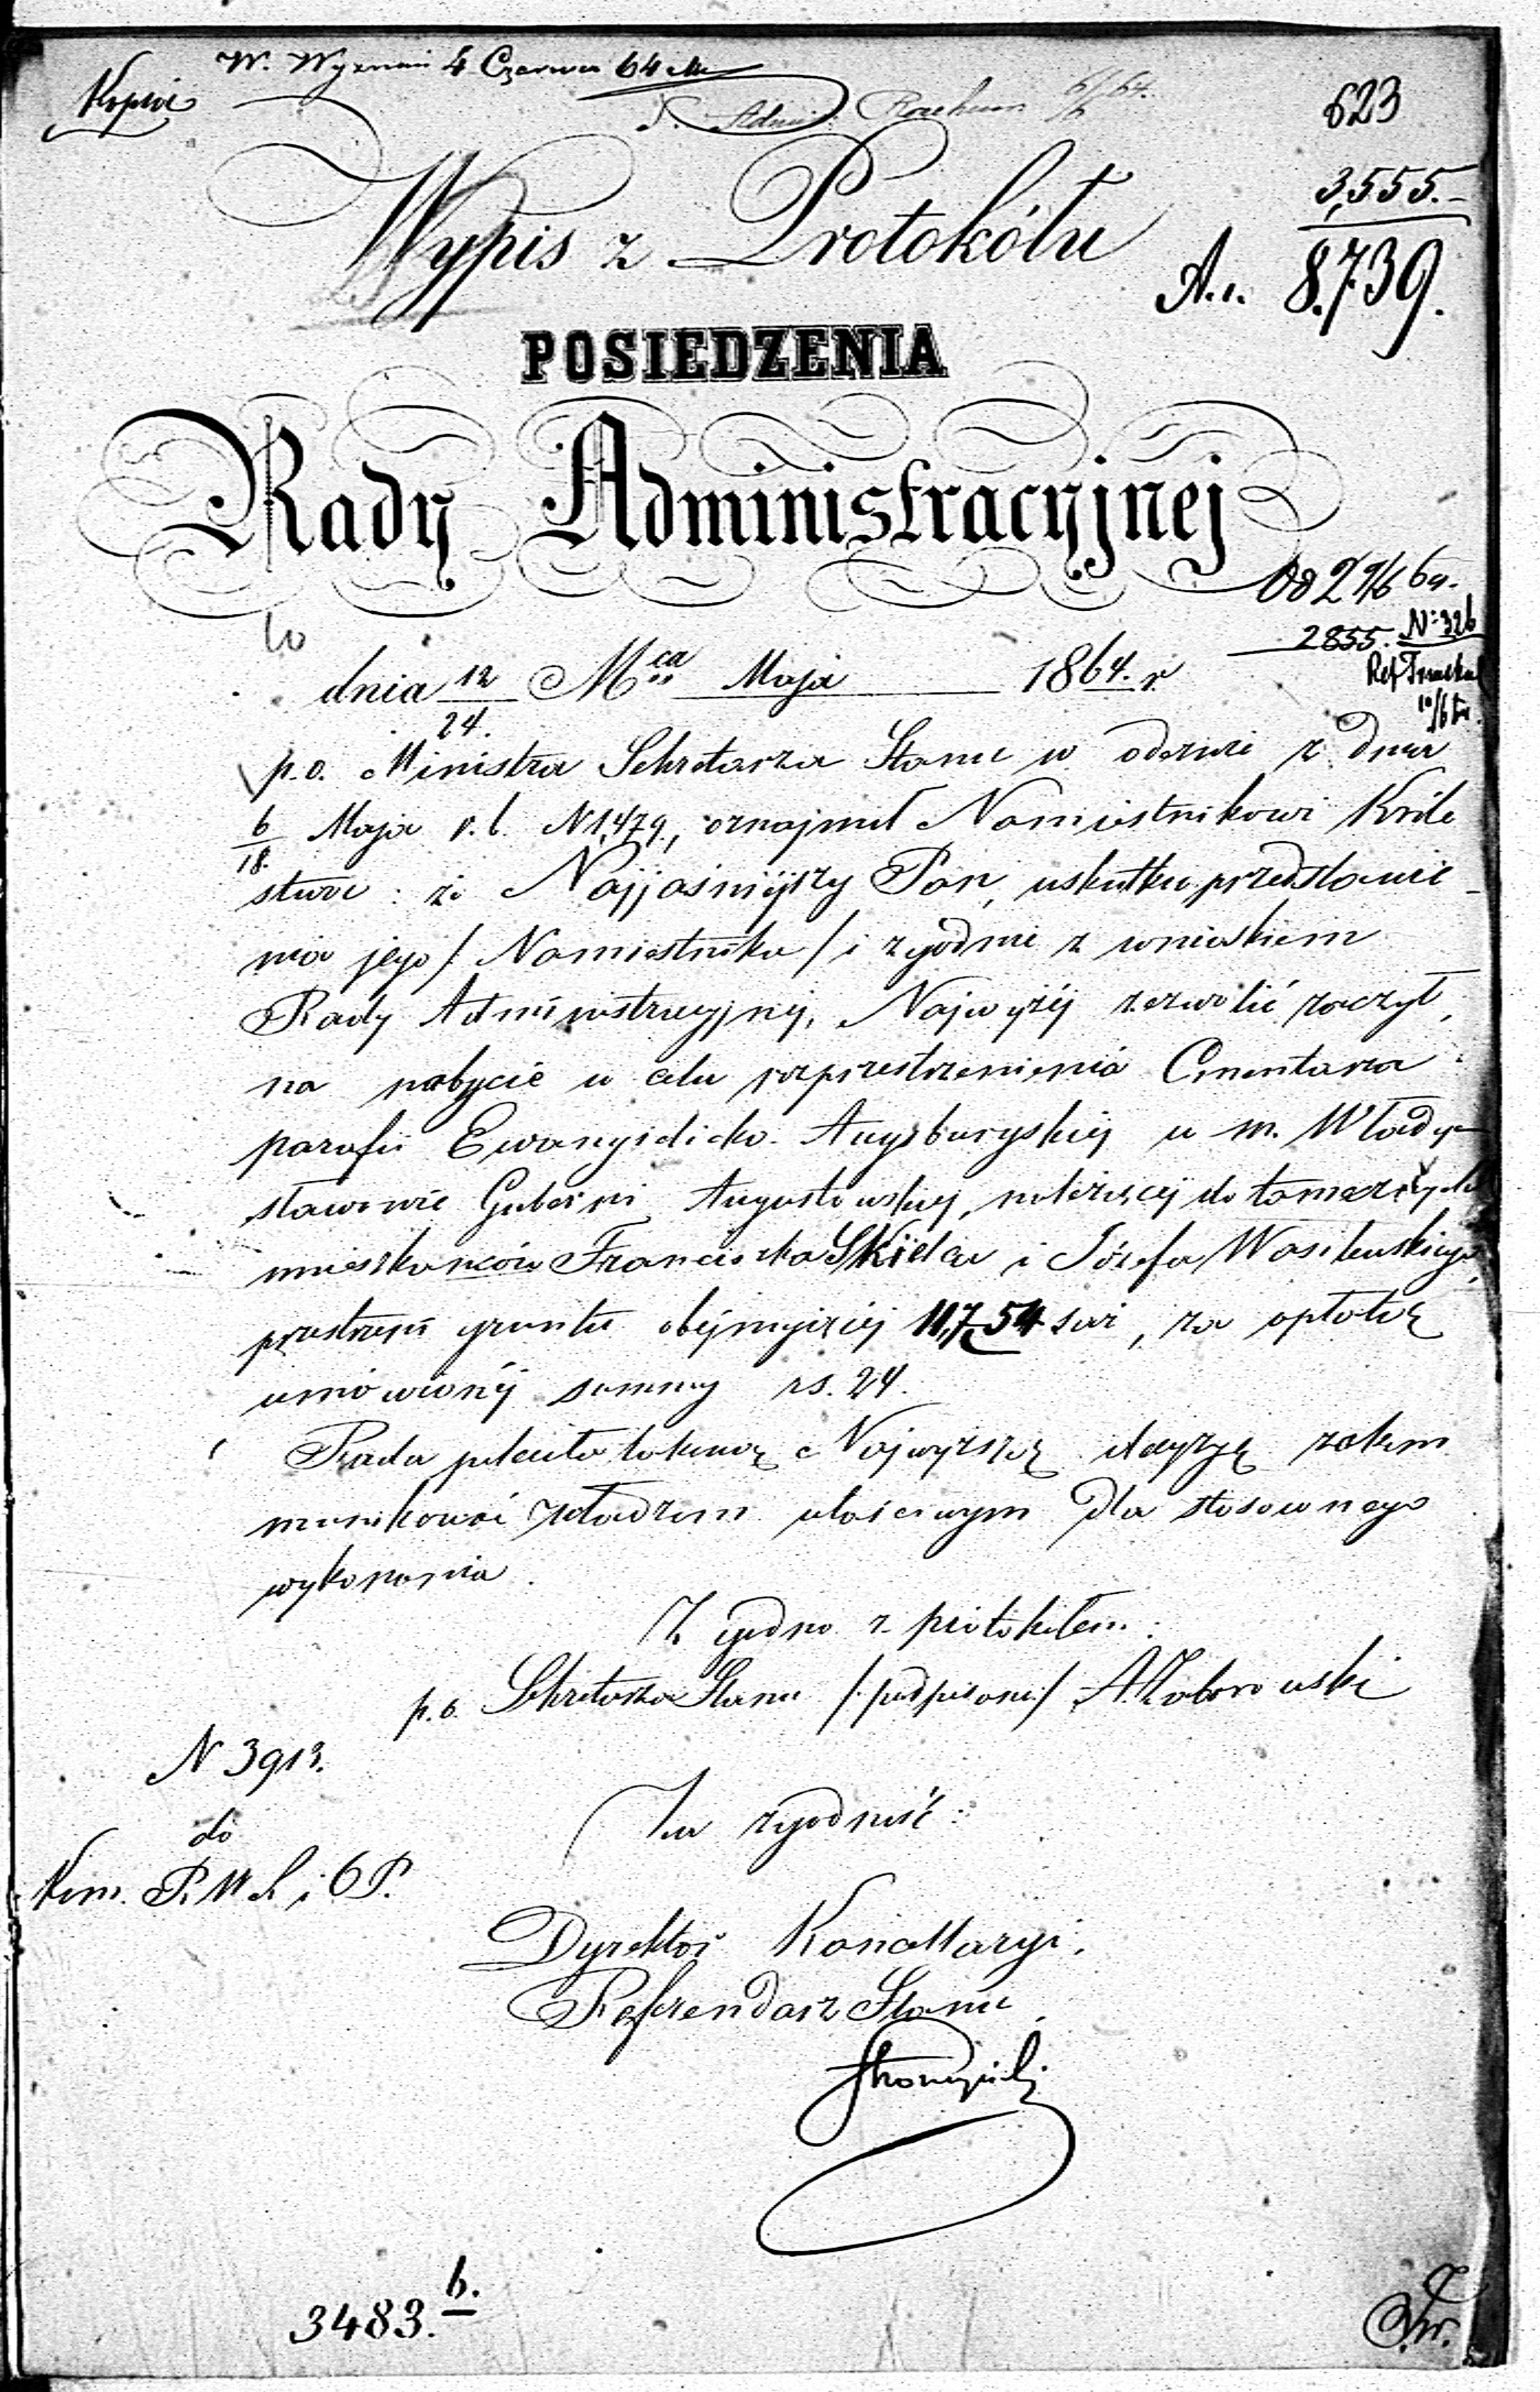 W. Wyznań 4 Czerwca 64
Kopia
623
3,555.-
Wypis z Protokółu
A.1. 8.739.
POSIEDZENIA
Rady Administracyjnej
2855. N: 326
dnia 12/24. Mca Maja 1864. r.
p.o. Ministra Sekretarza Stanu w odezwie z dnia
6/18. Maja r.b. N 1,479, oznajmił Namiestnikowi Króle
stwa: że Najjaśniejszy Pan, wskutku przedstawie-
nia jego /Namiestnika/ i zgodnie z wnioskiem
Rady Administracyjnej, Najwyżej zezwolić raczył,
na nabycie w celu rozprzestrzenienia Cmentarza
parafii Ewangielicko-Augsburgskiej w m. Włady-
sławowie Gubernii Augustowskiej, należącej do tamecznych
mieszkańców Franciszka i Józefa Wasilewskiego,
przestrzeni gruntu obejmującej 11,754 , za opłatą
umówionej summy rs. 24.
Rada poleciła takową Najwyższą decyzję zakom
munikować władzom właściwym dla stosownego
wykonania.
Zgodno z protokółem:
p.o. Sekretarza Stanu /podpisano/ A. Zaborowski
N 3913.
do
Kom. R. W. R. i O P.
Za zgodność:
Dyrektor Kancellaryi,
Referendarz Stanu
3483. b.